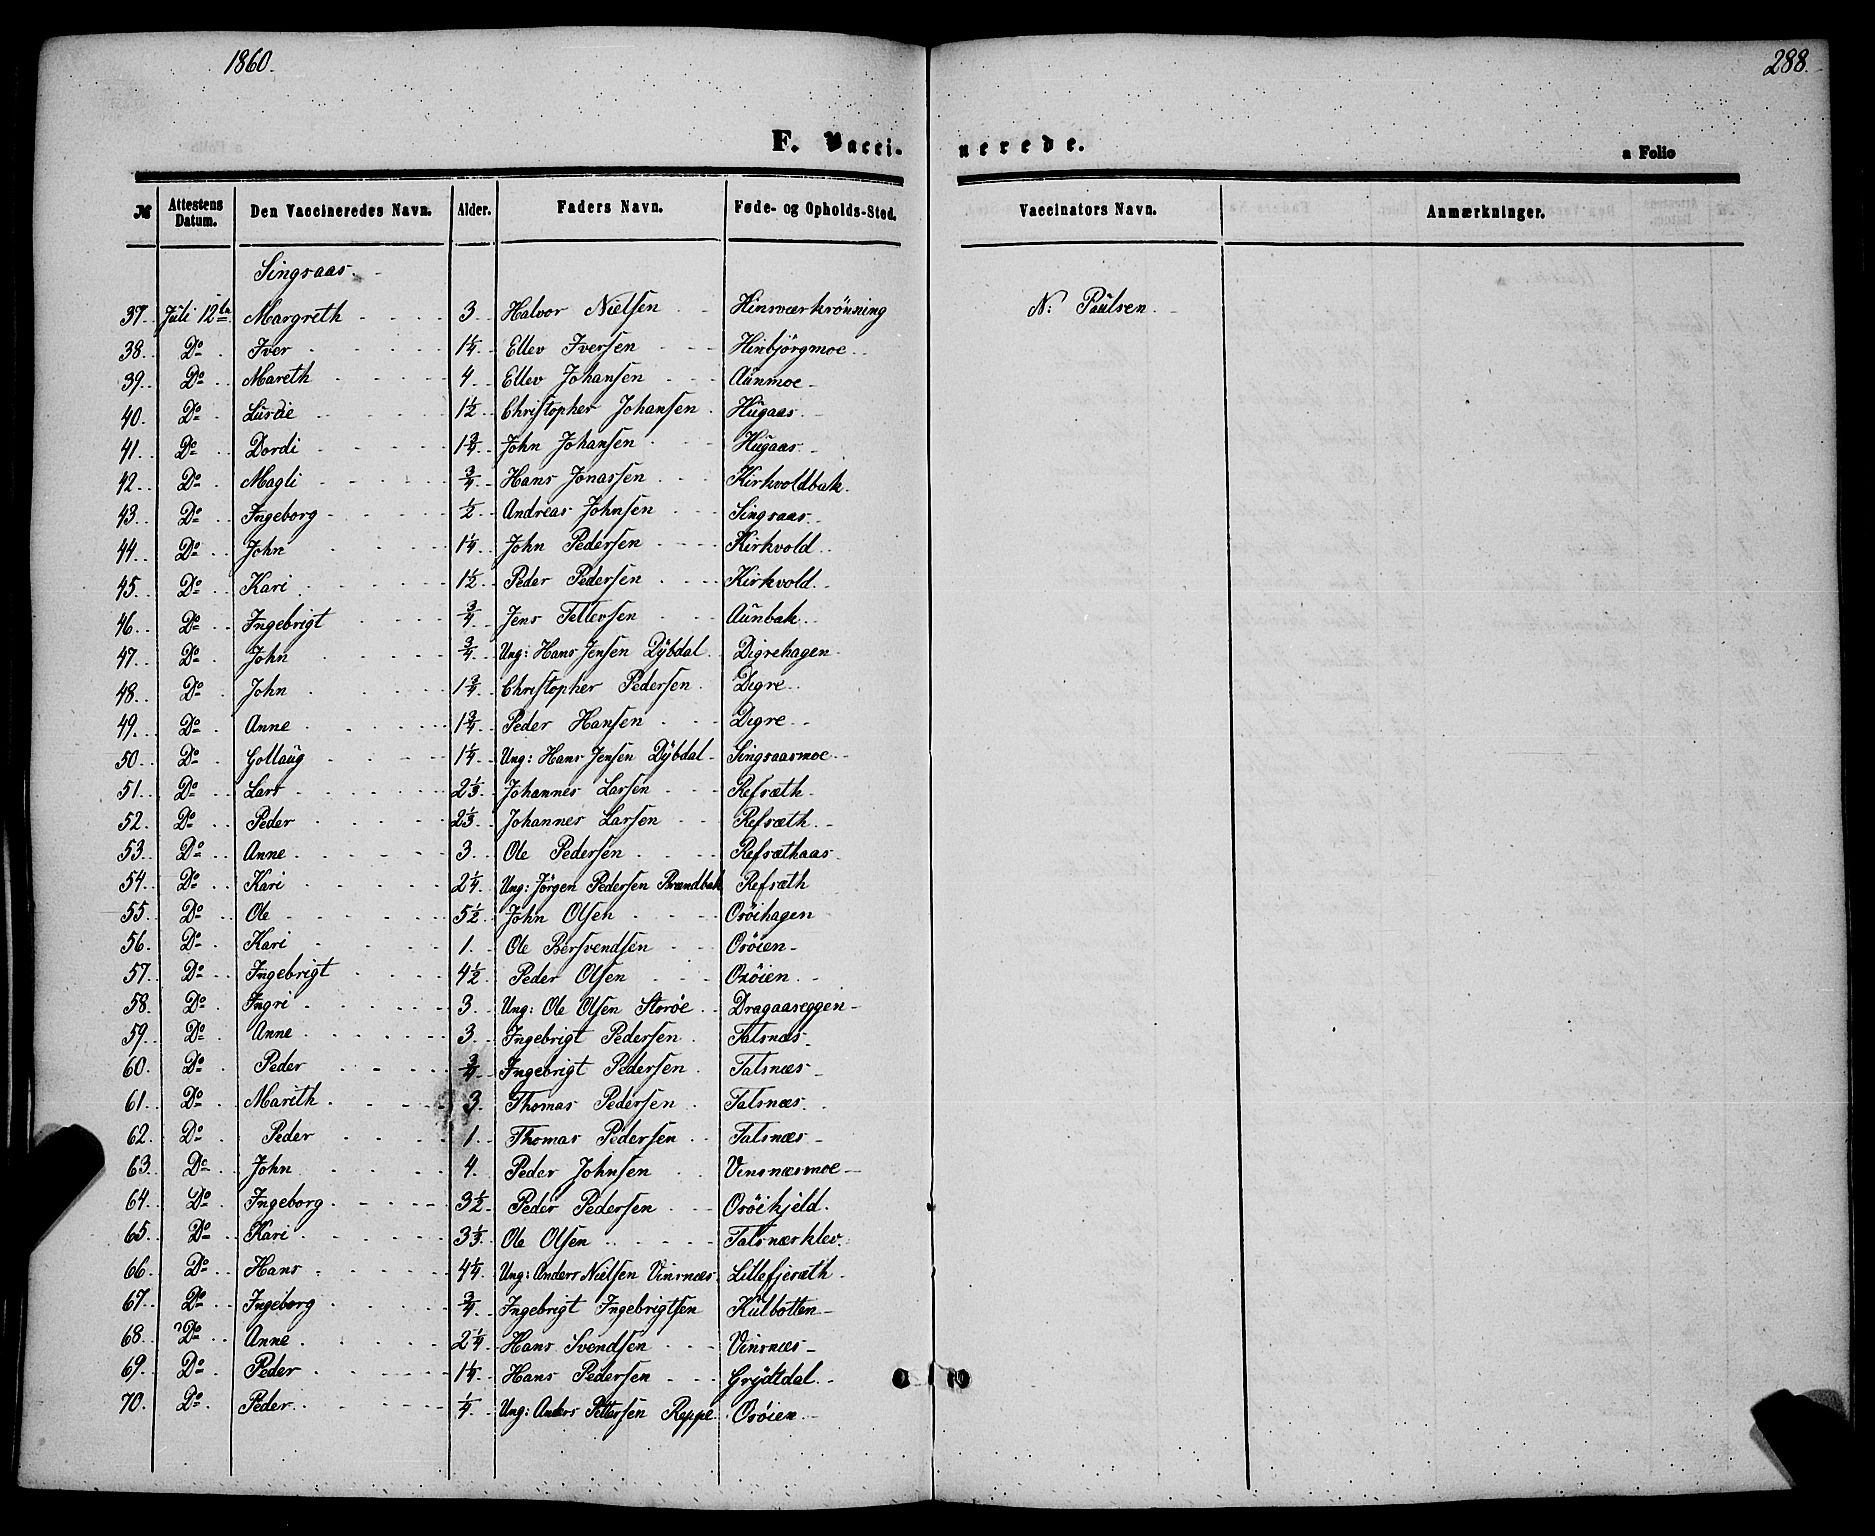 1860.
288.
F. Vacci-
nerede.
a Folio
№ Attestens Datum. Den Vaccineredes Navn. Alder. Faders Navn. Føde- og Opholds-Sted. Vaccinators Navn. Anmærkninger.
Singsaas.
37. Juli 12te Margreth 3. Halvor Nielsen Hinsværkrönning N: Paulsen.
38. Do Iver 1¼. Ellev Iversen Hinbjörgmoe
39. Do Mareth 4. Ellev Johansen Aunmoe
40. Do Lusdie 1½. Christopher Johansen Hugaas.
41. Do Dordi 1¾. John Johansen Hugaas.
42. Do Magli ¾. Hans Jonassen Kirkvoldbak.
43. Do Ingeborg ½. Andreas Johnsen Singsaas.
44. Do John 1¼. John Pedersen Kirkvold.
45. Do Kari 1½. Peder Pedersen Kirkvold.
46. Do Ingebrigt ¾. Jens Tellevsen Aunbak.
47. Do John ¾. Ung: Hans Jensen Dybdal. Digrehagen.
48. Do John 1¾. Christopher Pedersen Digre.
49. Do Anne 1¾. Peder Hansen Digre.
50. Do Gollaug 1¼. Ung: Hans Jensen Dybdal Singsaasmoe.
51. Do Lars 2⅓. Johannes Larsen Refsæth
52. Do Peder 2⅓. Johannes Larsen Refsæth.
53. Do Anne 3. Ole Pedersen Refsæthaas.
54. Do Kari 2¼. Ung: Jörgen Pedersen Brændbak Refsæth
55. Do Ole 5½. John Olsen Osöihagen
56. Do Kari 1. Ole Bersvendsen Osöien
57. Do Ingebrigt 4½. Peder Olsen Osöien.
58. Do Ingri 3. Ung: Ole Olsen Storöe Dragaaseggen
59. Do Anne 3. Ingebrigt Pedersen Talsnæs.
60. Do Peder ¾. Ingebrigt Pedersen Talsnæs
61. Do Marith 3. Thomas Pedersen Talsnæs.
62. Do Peder 1. Thomas Pedersen Talsnæs
63. Do John 4. Peder Johnsen Vinsnæsmoe
64. Do Ingeborg 3½. Peder Pedersen Osöikjeld.
65. Do Kari 3⅓. Ole Olsen Talsnæsklev.
66. Do Hans 4¼. Ung: Anders Nielsen Vinsnæs. Lillefjeræth.
67. Do Ingeborg ¾. Ingebrigt Ingebrigtsen Kulbotten
68. Do Anne 2¼. Hans Svendsen Vinsnæs
69. Do Peder 1¼. Hans Pedersen Grydtdal.
70. Do Peder ¼. Ung: Anders Pettersen Reppe Osöien